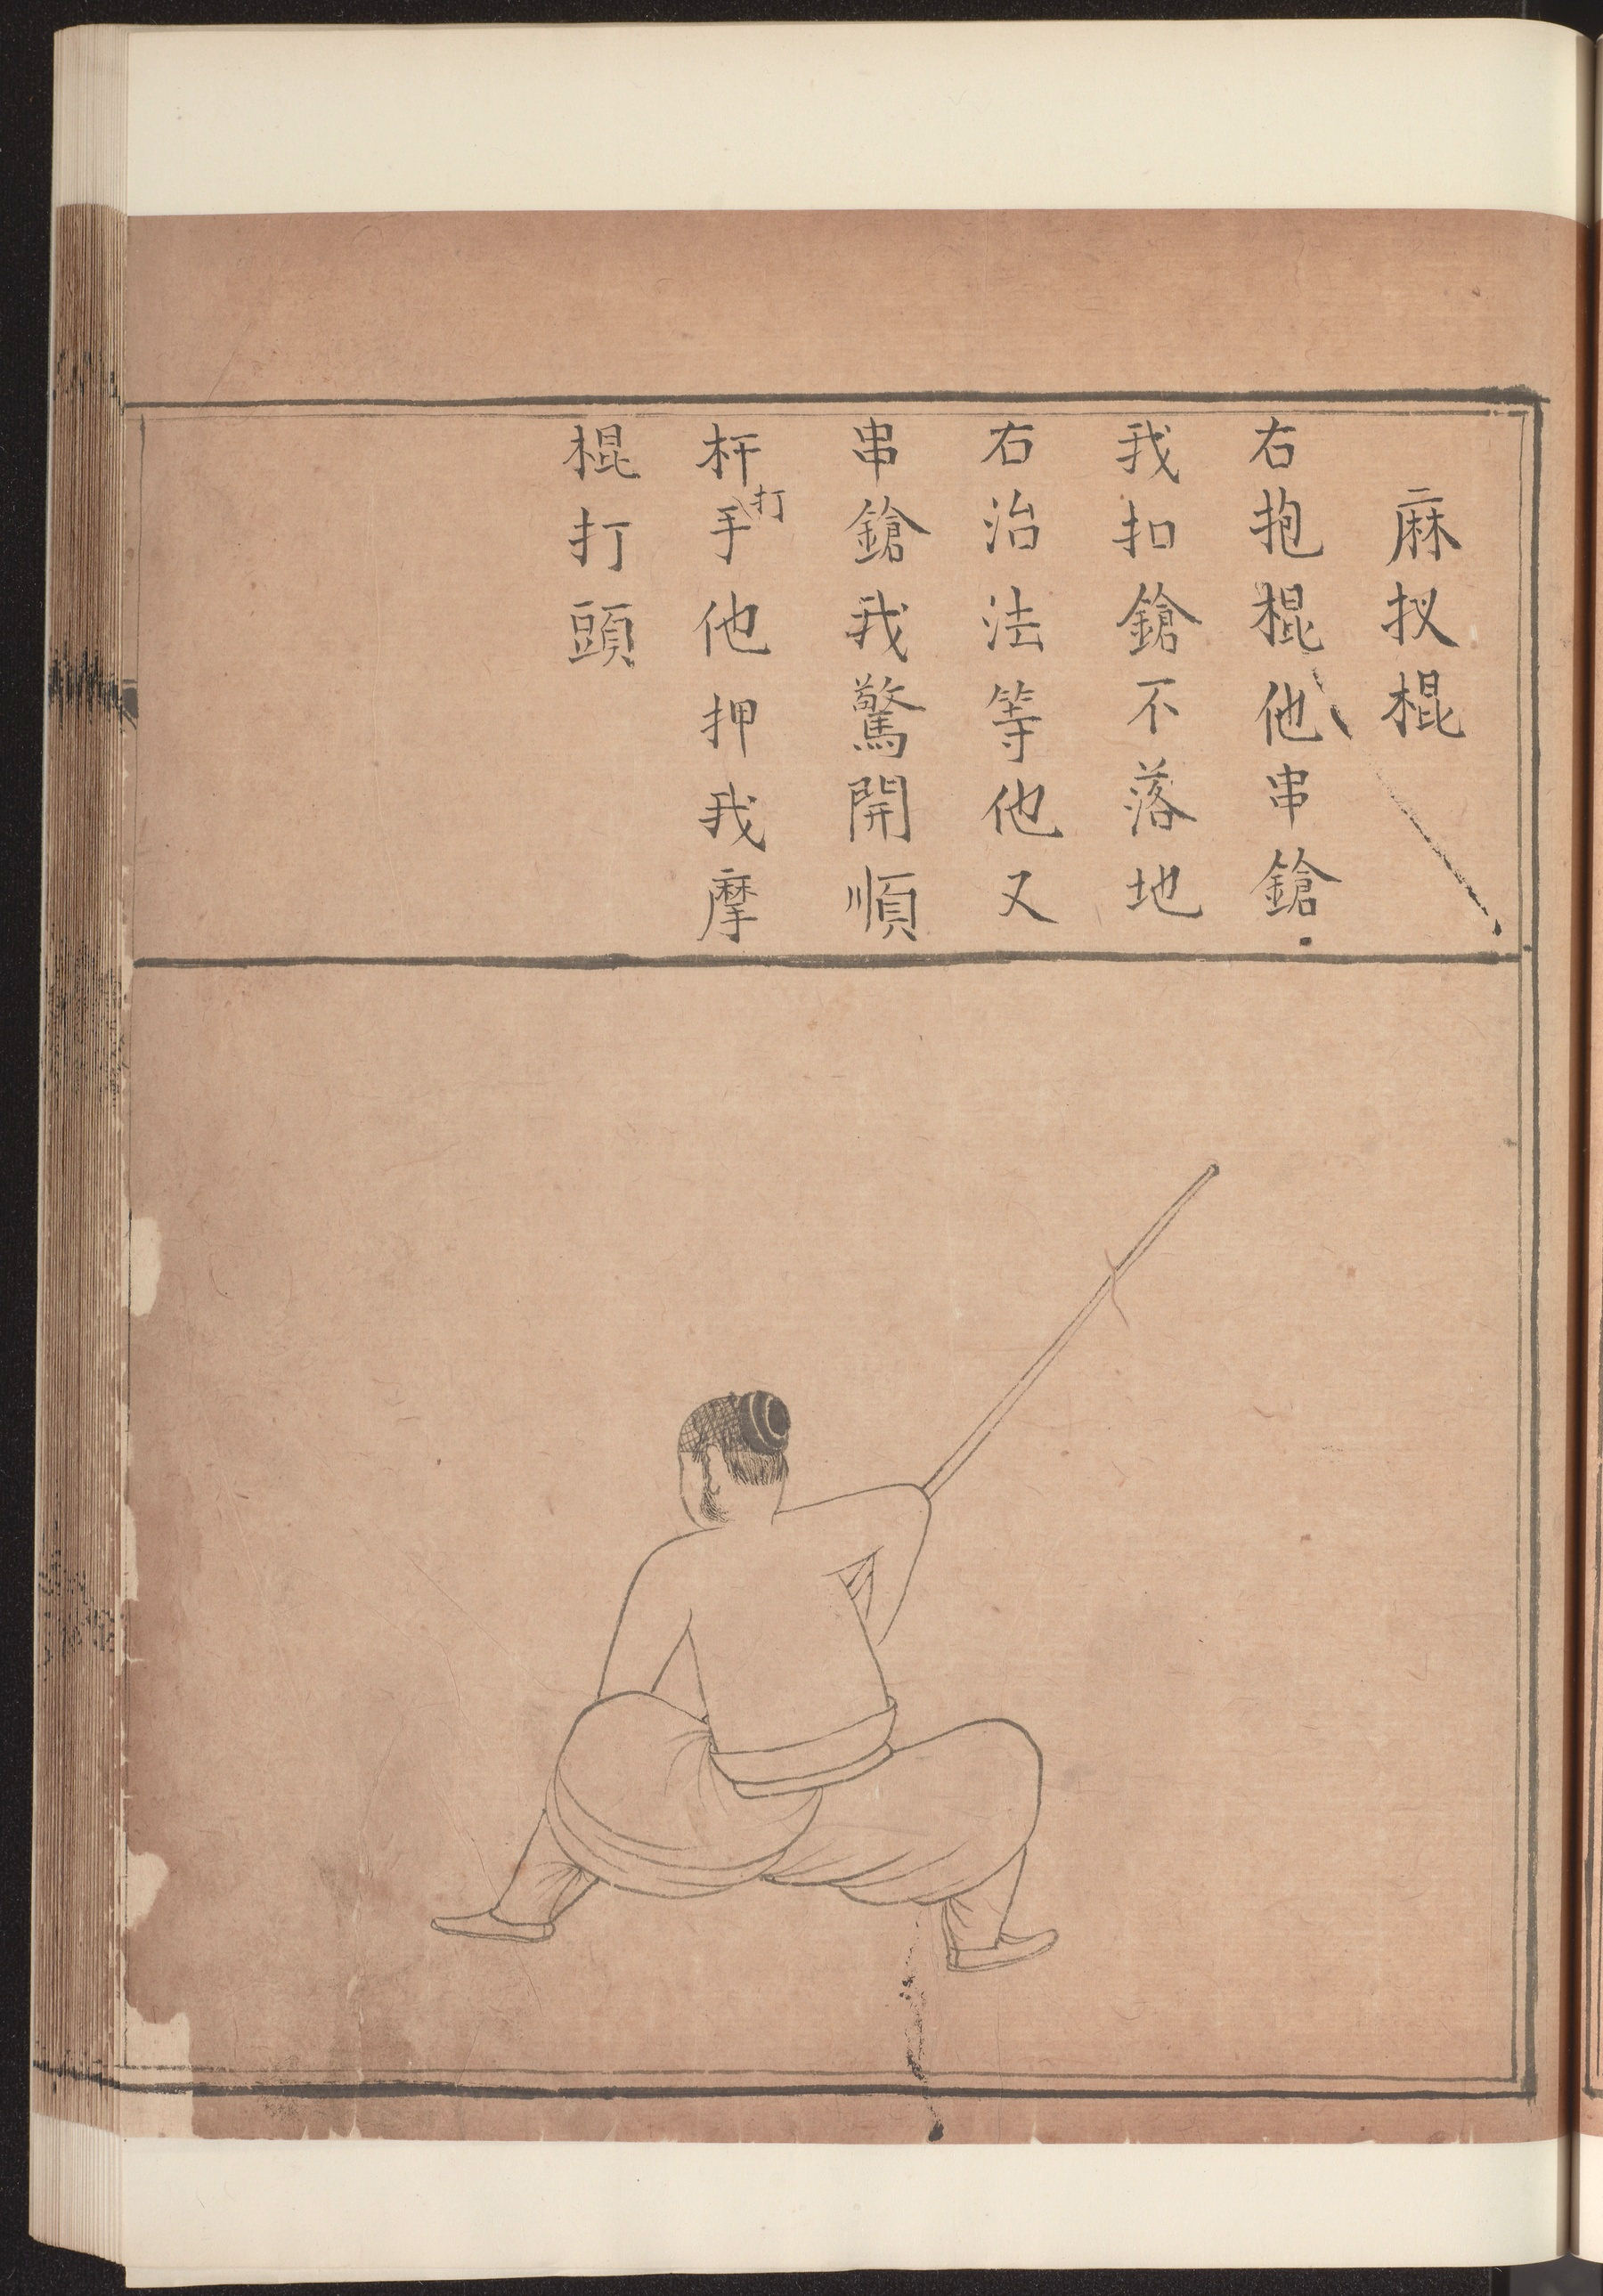 麻扠棍
右抱棍他串鎗
我扣鎗不落地
右治法等他又
串鎗我驚開順
杆打手他押我摩
棍打頭